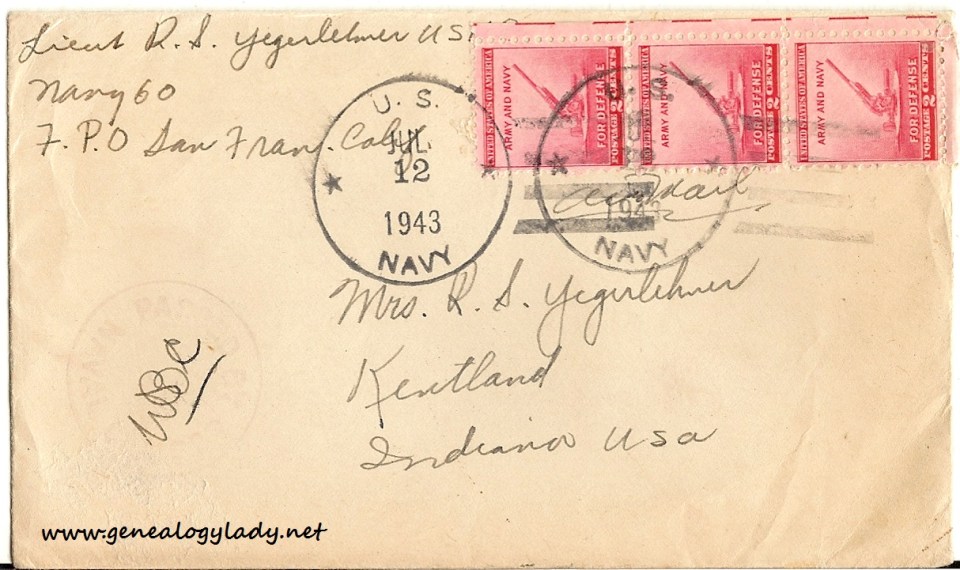 Lieut R. S. Yegerlehner USNR
Navy 60
F. P. O San Fran. Calif
UNITED STATES OF AMERICA
ARMY AND NAVY
FOR DEFENSE
POSTAGE 2 CENTS
UNITED STATES OF AMERICA
ARMY AND NAVY
FOR DEFENSE
POSTAGE 2 CENTS
UNITED STATES OF AMERICA
ARMY AND NAVY
FOR DEFENSE
POSTAGE 2 CENTS
U. S.
JUL
12
1943
NAVY
U. S.
1943
NAVY
Air Mail
Mrs. R. S. Yegerlehner
Kentland
Indiana USA
PASSED
NAVAL
WBC
www.genealogylady.net